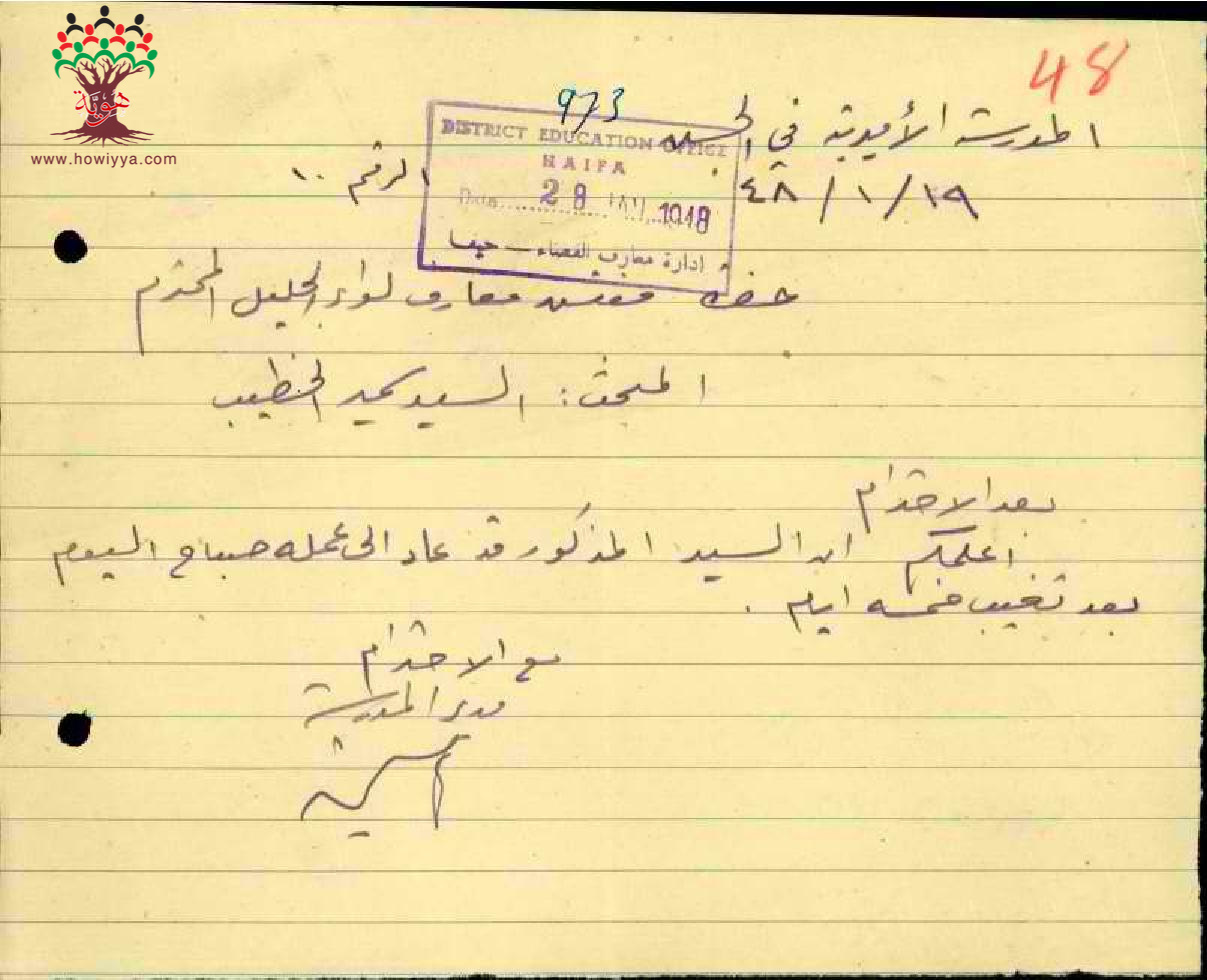 48
هوية
www.howiyya.com
973
المدرسة الأميرية في
DISTRICT EDUCATION OFFICE
HAIFA
Date 28 JAN 1948
ادارة معارف القضاء — حيفا
١٩/١/٤٨
الرقم ١٠
حضرة مفتش معارف لواء الجليل المحترم
المبحث: السيد الخطيب
بعد الاحترام
اعلمكم ان السيد المذكور قد عاد الى عمله صباح اليوم
بعد تغيب خمسة ايام.
مع الاحترام
مدير المدرسة